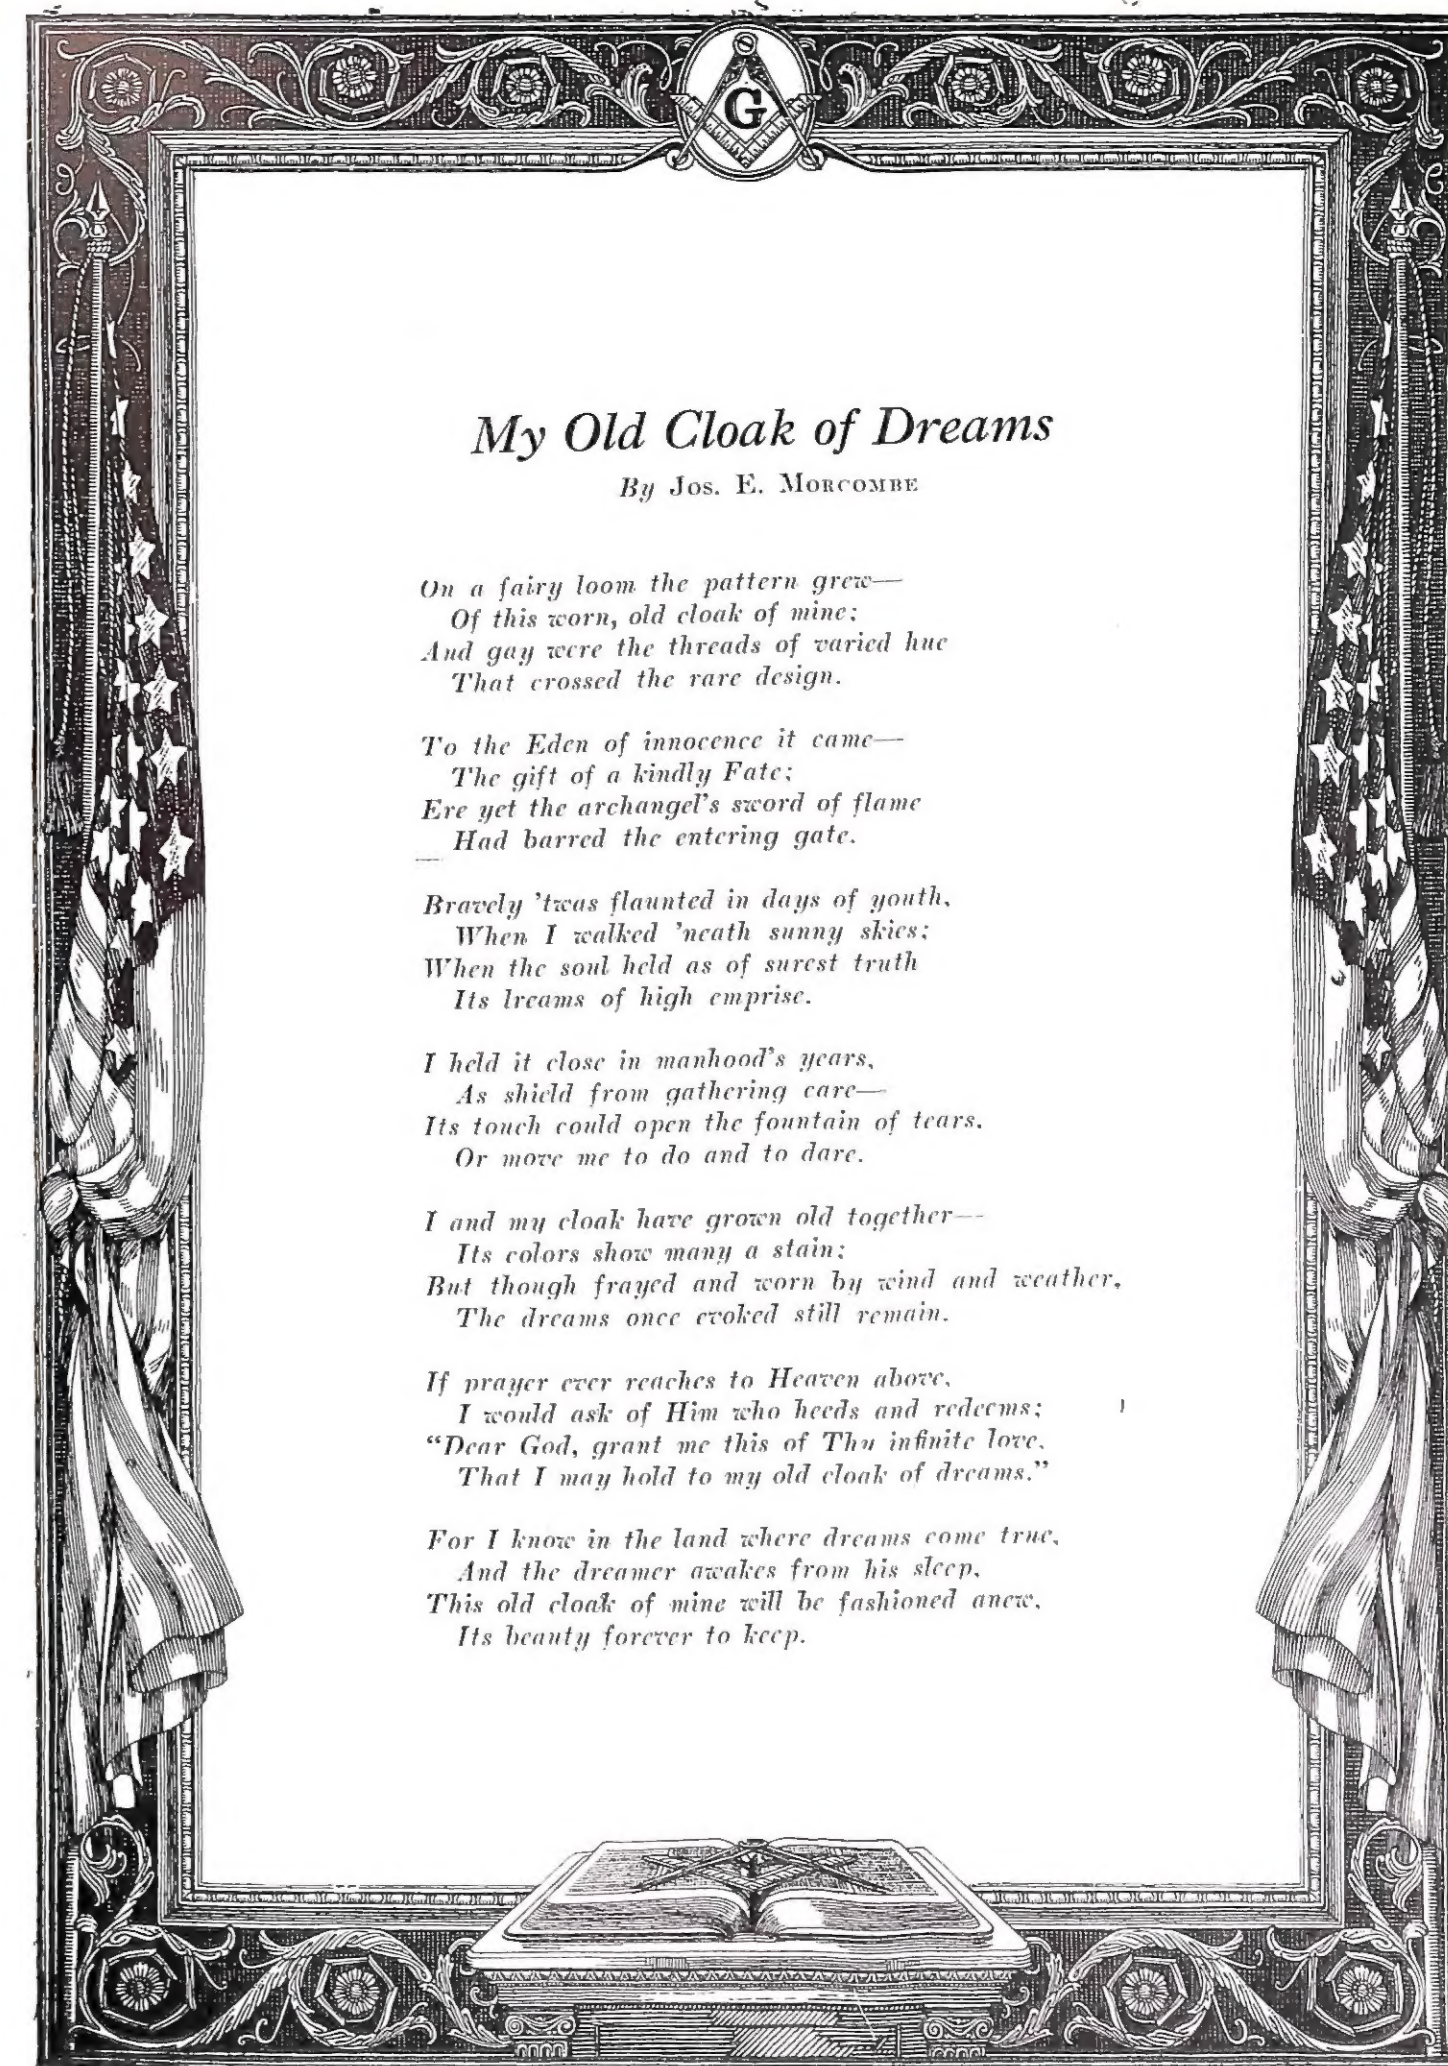 G
My Old Cloak of Dreams
By Jos. E. Morcombe
On a fairy loom the pattern grew—
Of this worn, old cloak of mine;
And gay were the threads of varied hue
That crossed the rare design.
To the Eden of innocence it came—
The gift of a kindly Fate;
Ere yet the archangel's sword of flame
Had barred the entering gate.
Bravely 'twas flaunted in days of youth,
When I walked 'neath sunny skies;
When the soul held as of surest truth
Its lreams of high emprise.
I held it close in manhood's years,
As shield from gathering care—
Its touch could open the fountain of tears,
Or move me to do and to dare.
I and my cloak have grown old together—
Its colors show many a stain;
But though frayed and worn by wind and weather,
The dreams once evoked still remain.
If prayer ever reaches to Heaven above,
I would ask of Him who heeds and redeems;
“Dear God, grant me this of Thy infinite love,
That I may hold to my old cloak of dreams.”
For I know in the land where dreams come true,
And the dreamer awakes from his sleep,
This old cloak of mine will be fashioned anew,
Its beauty forever to keep.